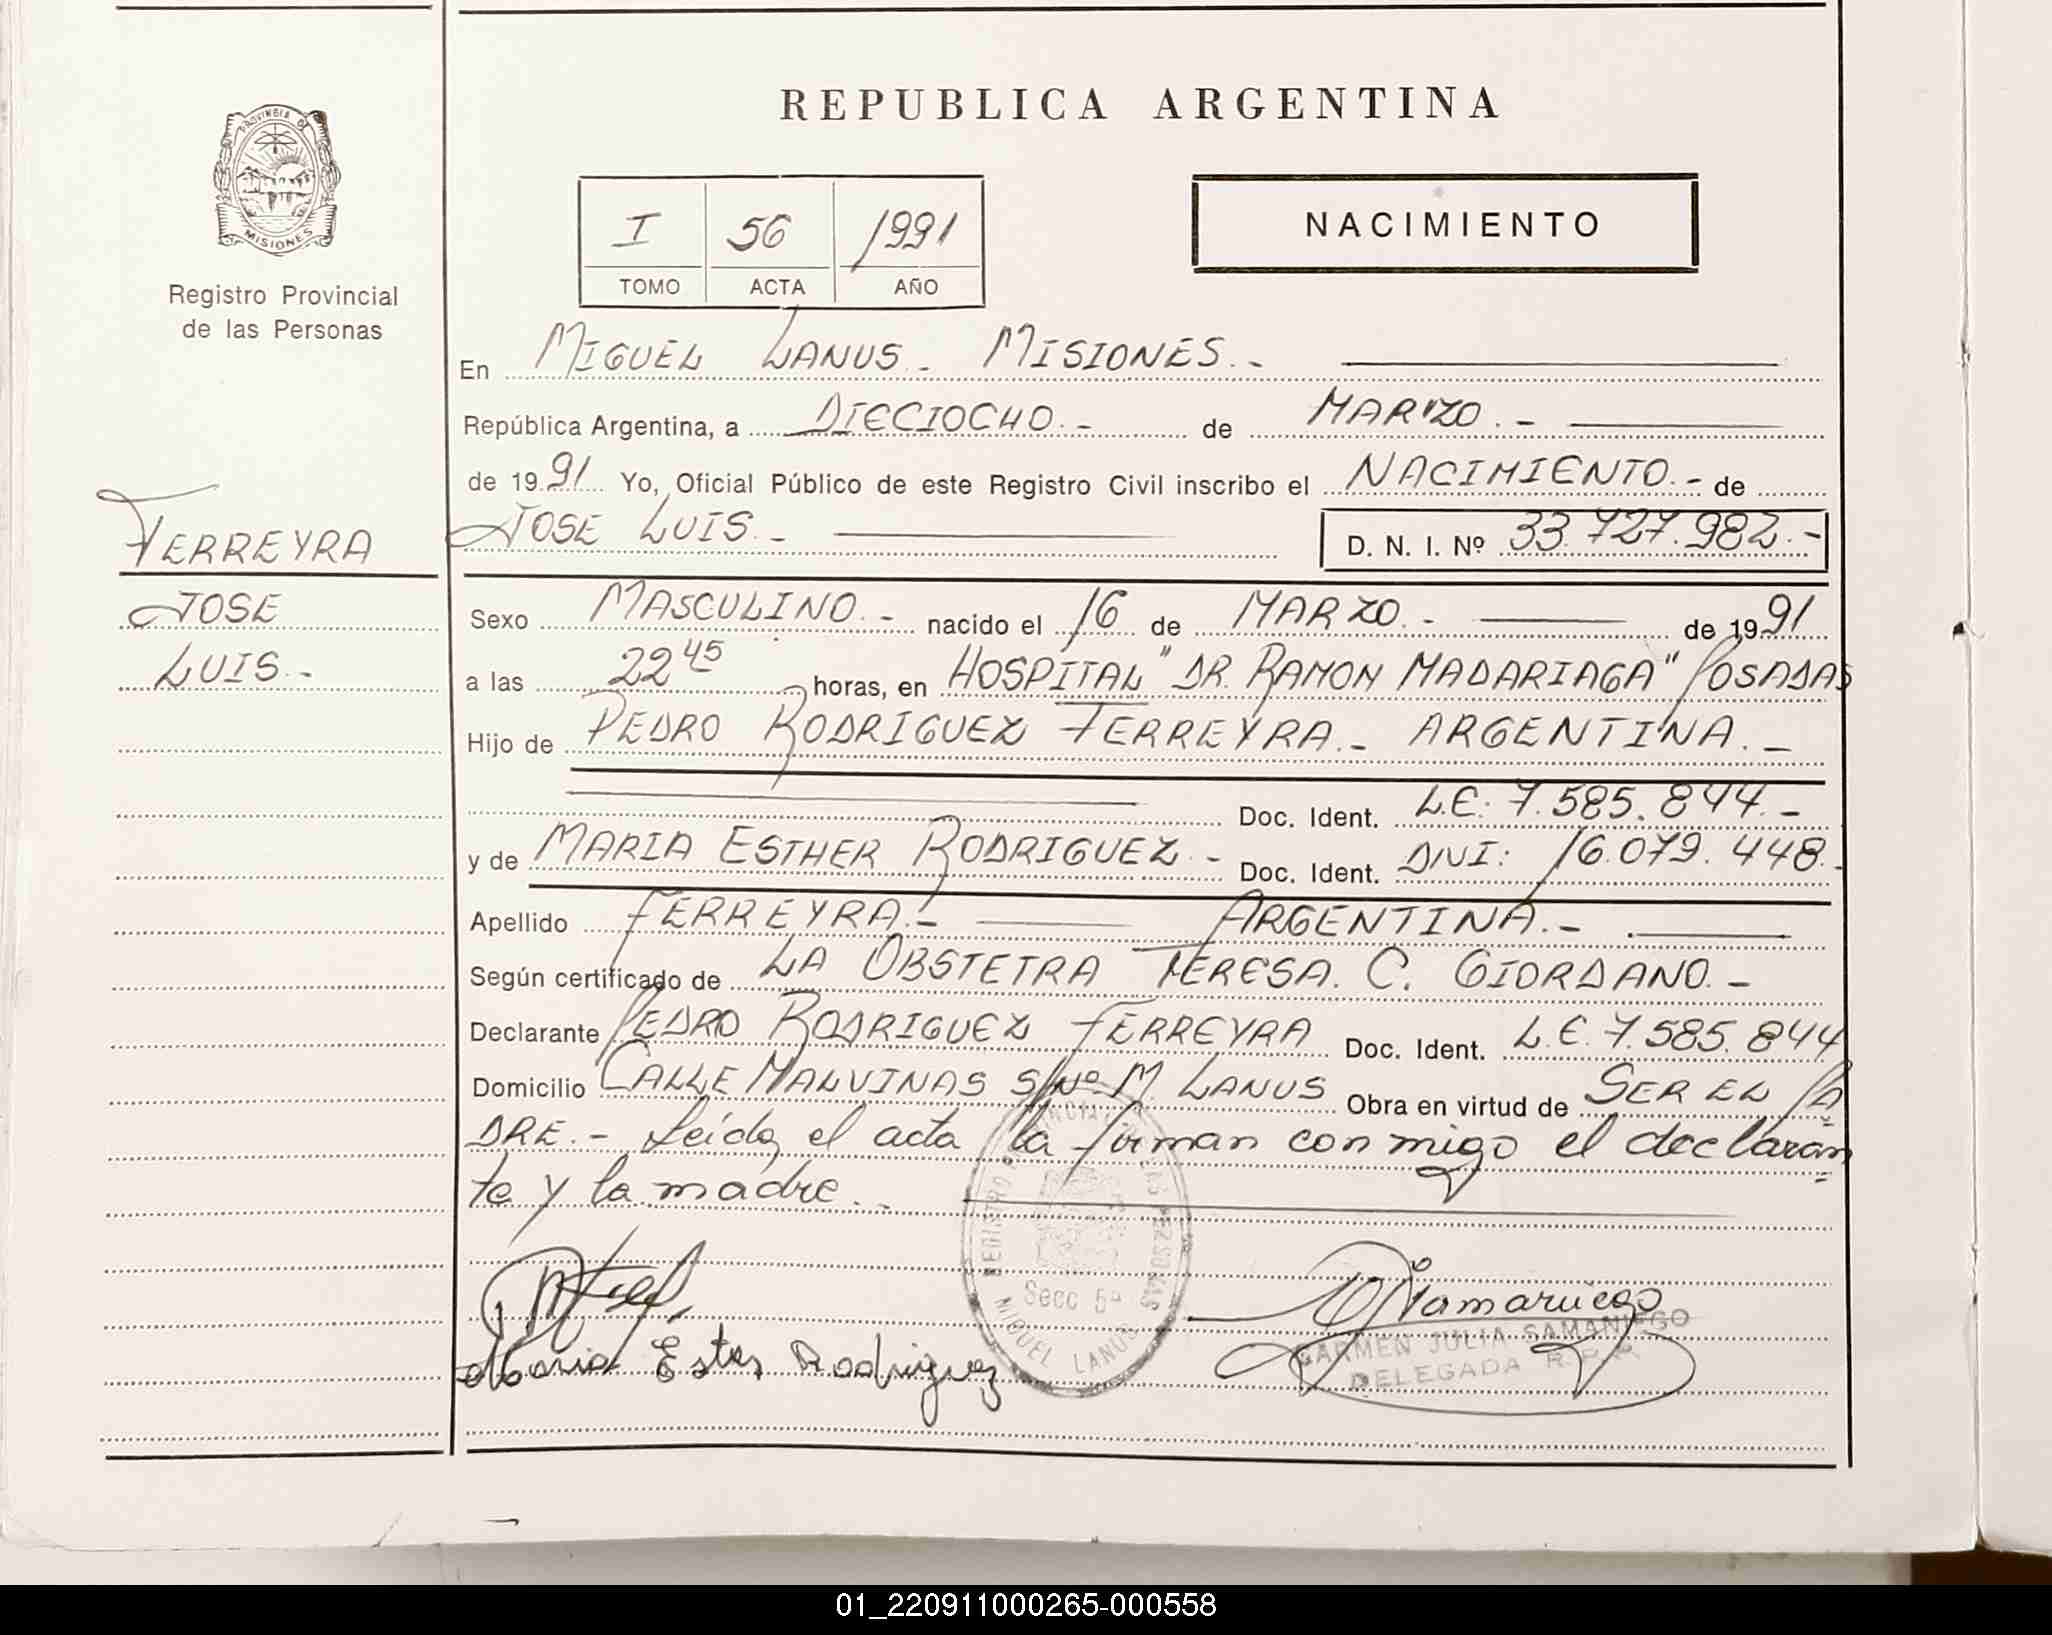 REPUBLICA ARGENTINA
PROVINCIA DE
MISIONES
Registro Provincial
de las Personas
I 56 1991
TOMO ACTA AÑO
NACIMIENTO
En MIGUEL LANUS.- MISIONES.-
República Argentina, a DIECIOCHO.- de MARZO.-
de 1991 Yo, Oficial Público de este Registro Civil inscribo el NACIMIENTO.- de
FERREYRA
JOSE LUIS.-
JOSE LUIS.- D. N. I. Nº 33.727.982.-
Sexo MASCULINO.- nacido el 16 de MARZO.- de 1991
a las 22 45 horas, en HOSPITAL "DR. RAMON MADARIAGA" POSADAS
Hijo de PEDRO RODRIGUEZ FERREYRA.- ARGENTINA.-
Doc. Ident. L.E: 7.585.844.-
y de MARIA ESTHER RODRIGUEZ.- Doc. Ident. DNI: 16.079.448.-
Apellido FERREYRA.- ARGENTINA.-
Según certificado de LA OBSTETRA TERESA. C. GIORDANO.-
Declarante PEDRO RODRIGUEZ FERREYRA Doc. Ident. L.E. 7.585.844
Domicilio CALLE MALVINAS S/Nº M. LANUS Obra en virtud de SER EL PA
DRE.- Leída el acta la firman conmigo el declaran
te y la madre.-
REGISTRO PROVINCIAL DE LAS PERSONAS
Secc 5ª
MIGUEL LANUS
Maria Ester Rodriguez
CARMEN JULIA SAMANIEGO
DELEGADA R.P.P.
01_220911000265-000558